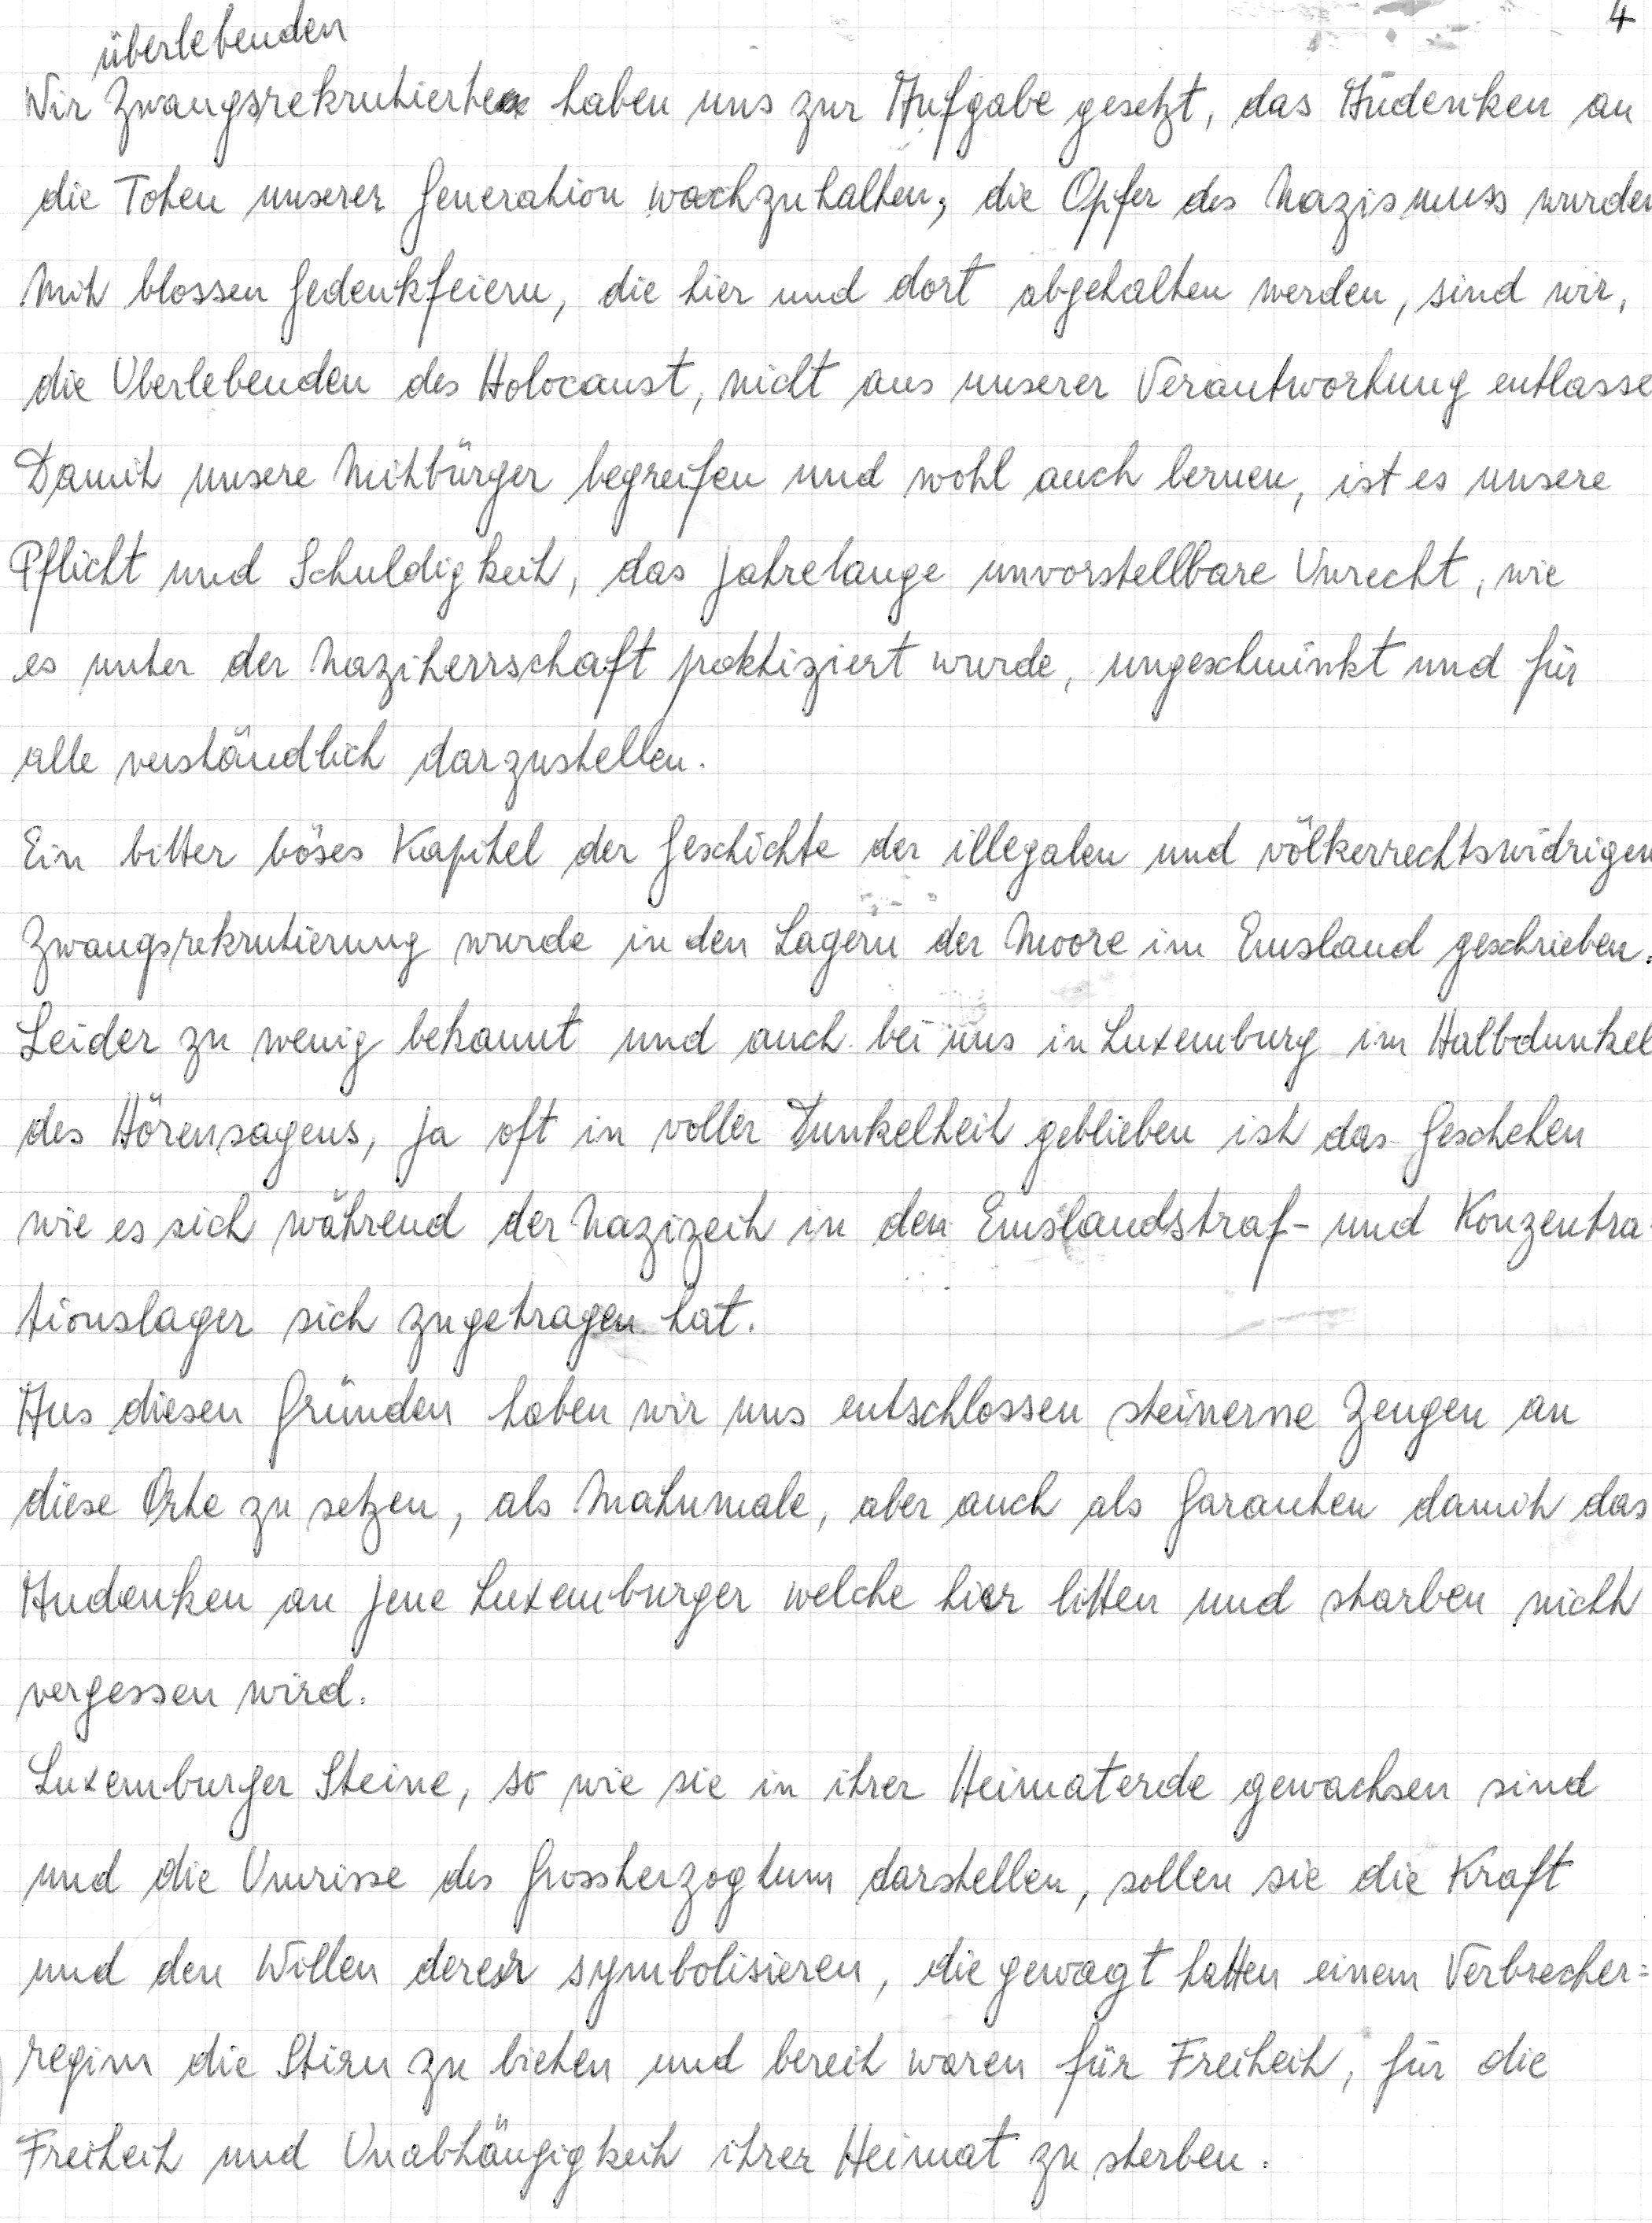 4
überlebenden
Wir Zwangsrekrutierten haben uns zur Aufgabe gesetzt, das Andenken an
die Toten unserer Generation wachzuhalten, die Opfer des Nazismuss wurden
Mit blossen Gedenkfeiern, die hier und dort abgehalten werden, sind wir,
die Uberlebenden des Holocaust, nicht aus unserer Verantwortung entlasse
Damit unsere Mitbürger begreifen und wohl auch lernen, ist es unsere
Pflicht und Schuldigkeit, das jahrelange unvorstellbare Unrecht, wie
es unter der Naziherrschaft praktiziert wurde, ungeschminkt und für
alle verständlich darzustellen.
Ein bitter böses Kapitel der Geschichte der illegalen und völkerrechtswidrigen
Zwangsrekrutierung wurde in den Lagern der Moore im Emsland geschrieben.
Leider zu wenig bekannt und auch bei uns in Luxemburg im Halbdunkel
des Hörensagens, ja oft in voller Dunkelheit geblieben ist das Geschehen
wie es sich während der Nazizeit in den Emslandstraf- und Konzentra-
tionslager sich zugetragen hat.
Aus diesen Gründen haben wir uns entschlossen steinerne Zeugen an
diese Orte zu setzen, als Mahnmale, aber auch als Garanten damit das
Andenken an jene Luxemburger welche hier litten und starben nicht
vergessen wird.
Luxemburger Steine, so wie sie in ihrer Heimaterde gewachsen sind
und die Umrisse des Grossherzogtum darstellen, sollen sie die Kraft
und den Willen derer symbolisieren, die gewagt hatten einem Verbrecher=
regim die Stirn zu bieten und bereit waren für Freiheit, für die
Freiheit und Unabhängigkeit ihrer Heimat zu sterben.